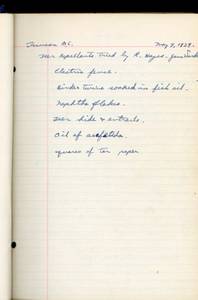 May 7, 1939.
Deer Repellents tried by R. Hayes.
Electric fence.
Binder twine soaked in fish oil.
Naphtha flakes.
Deer hide & entrails.
Oil of
squares of tar paper.